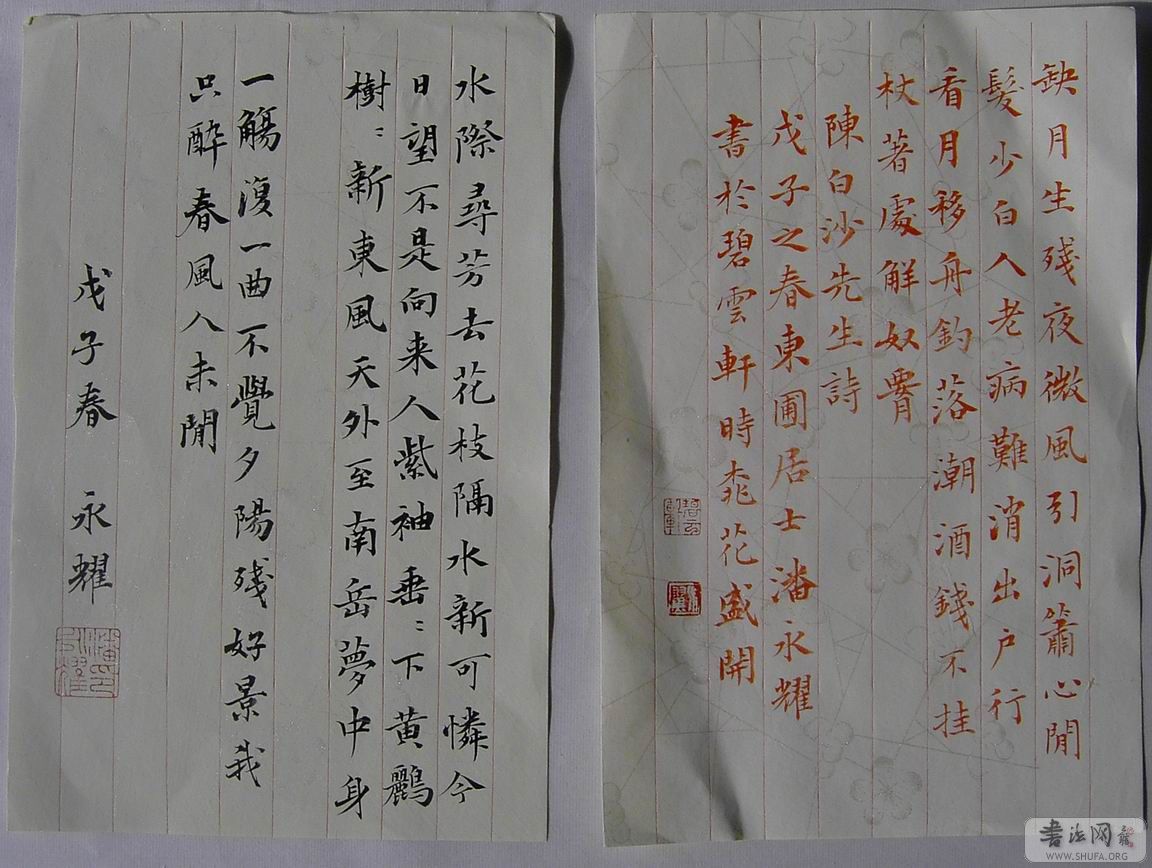 缺月生殘夜微風引洞簫心閒
髮少白人老病難消出户行
看月移舟釣落潮酒錢不挂
杖著處解奴霄
陳白沙先生詩
戊子之春東圃居士潘永耀
書於碧雲軒時桃花盛開
水際尋芳去花枝隔水新可憐今
日望不是向来人紫袖垂：下黄鸝
樹：新東風天外至南岳夢中身
一觴復一曲不覺夕陽殘好景我
只醉春風人未閒
戊子春 永耀
潘永耀
書法网
WWW.SHUFA.ORG